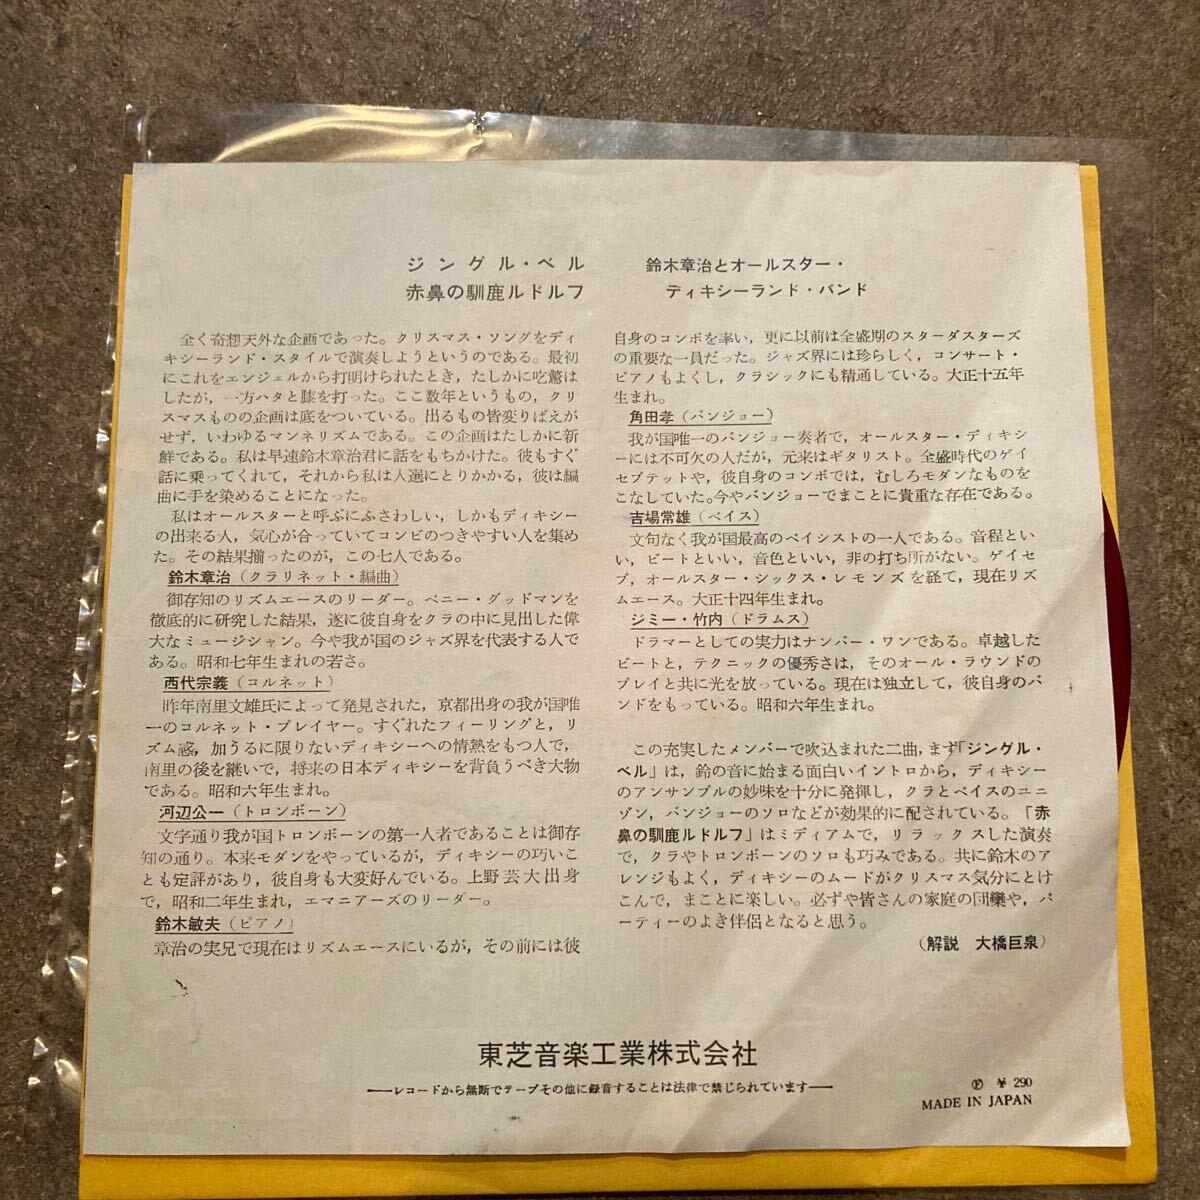 ジングル・ベル
赤鼻の馴鹿ルドルフ
鈴木章治とオールスター・
ディキシーランド・バンド
全く奇想天外な企画であった。クリスマス・ソングをディ
キシーランド・スタイルで演奏しようというのである。最初
にこれをエンジェルから打明けられたとき，たしかに吃驚は
したが，一方ハタと膝を打った。ここ数年というもの，クリ
スマスものの企画は底をついている。出るもの皆変りばえが
せず，いわゆるマンネリズムである。この企画はたしかに新
鮮である。私は早速鈴木章治君に話をもちかけた。彼もすぐ
話に乗ってくれて，それから私は人選にとりかかる，彼は編
曲に手を染めることになった。
私はオールスターと呼ぶにふさわしい，しかもディキシー
の出来る人，気心が合っていてコンビのつきやすい人を集め
た。その結果揃ったのが，この七人である。
鈴木章治（クラリネット・編曲）
御存知のリズムエースのリーダー。ベニー・グッドマンを
徹底的に研究した結果，遂に彼自身をクラの中に見出した偉
大なミュージシャン。今や我が国のジャズ界を代表する人で
ある。昭和七年生まれの若さ。
西代宗義（コルネット）
昨年南里文雄氏によって発見された，京都出身の我が国唯
一のコルネット・プレイヤー。すぐれたフィーリングと，リ
ズム感，加うるに限りないディキシーへの情熱をもつ人で，
南里の後を継いで，将来の日本ディキシーを背負うべき大物
である。昭和六年生まれ。
河辺公一（トロンボーン）
文字通り我が国トロンボーンの第一人者であることは御存
知の通り。本来モダンをやっているが，ディキシーの巧いこ
とも定評があり，彼自身も大変好んでいる。上野芸大出身
で，昭和二年生まれ，エマニアーズのリーダー。
鈴木敏夫（ピアノ）
章治の実兄で現在はリズムエースにいるが，その前には彼
自身のコンボを率い，更に以前は全盛期のスターダスターズ
の重要な一員だった。ジャズ界には珍らしく，コンサート・
ピアノもよくし，クラシックにも精通している。大正十五年
生まれ。
角田孝（バンジョー）
我が国唯一のバンジョー奏者で，オールスター・ディキシ
ーには不可欠の人だが，元来はギタリスト。全盛時代のゲイ
セプテットや，彼自身のコンボでは，むしろモダンなものを
こなしていた。今やバンジョーでまことに貴重な存在である。
吉場常雄（ベイス）
文句なく我が国最高のベイシストの一人である。音程とい
い，ビートといい，音色といい，非の打ち所がない。ゲイセ
プ，オールスター・シックス・レモンズを経て，現在リズ
ムエース。大正十四年生まれ。
ジミー・竹内（ドラムス）
ドラマーとしての実力はナンバー・ワンである。卓越した
ビートと，テクニックの優秀さは，そのオール・ラウンドの
プレイと共に光を放っている。現在は独立して，彼自身のバ
ンドをもっている。昭和六年生まれ。
この充実したメンバーで吹込まれた二曲，まず「ジングル・
ベル」は，鈴の音に始まる面白いイントロから，ディキシー
のアンサンブルの妙味を十分に発揮し，クラとベイスのユニ
ゾン，バンジョーのソロなどが効果的に配されている。「赤
鼻の馴鹿ルドルフ」はミディアムで，リラックスした演奏
で，クラやトロンボーンのソロも巧みである。共に鈴木のア
レンジもよく，ディキシーのムードがクリスマス気分にとけ
こんで，まことに楽しい。必ずや皆さんの家庭の団欒や，パ
ーティーのよき伴侶となると思う。
（解説　大橋巨泉）
東芝音楽工業株式会社
——レコードから無断でテープその他に録音することは法律で禁じられています——
Ⓟ ¥ 290
MADE IN JAPAN